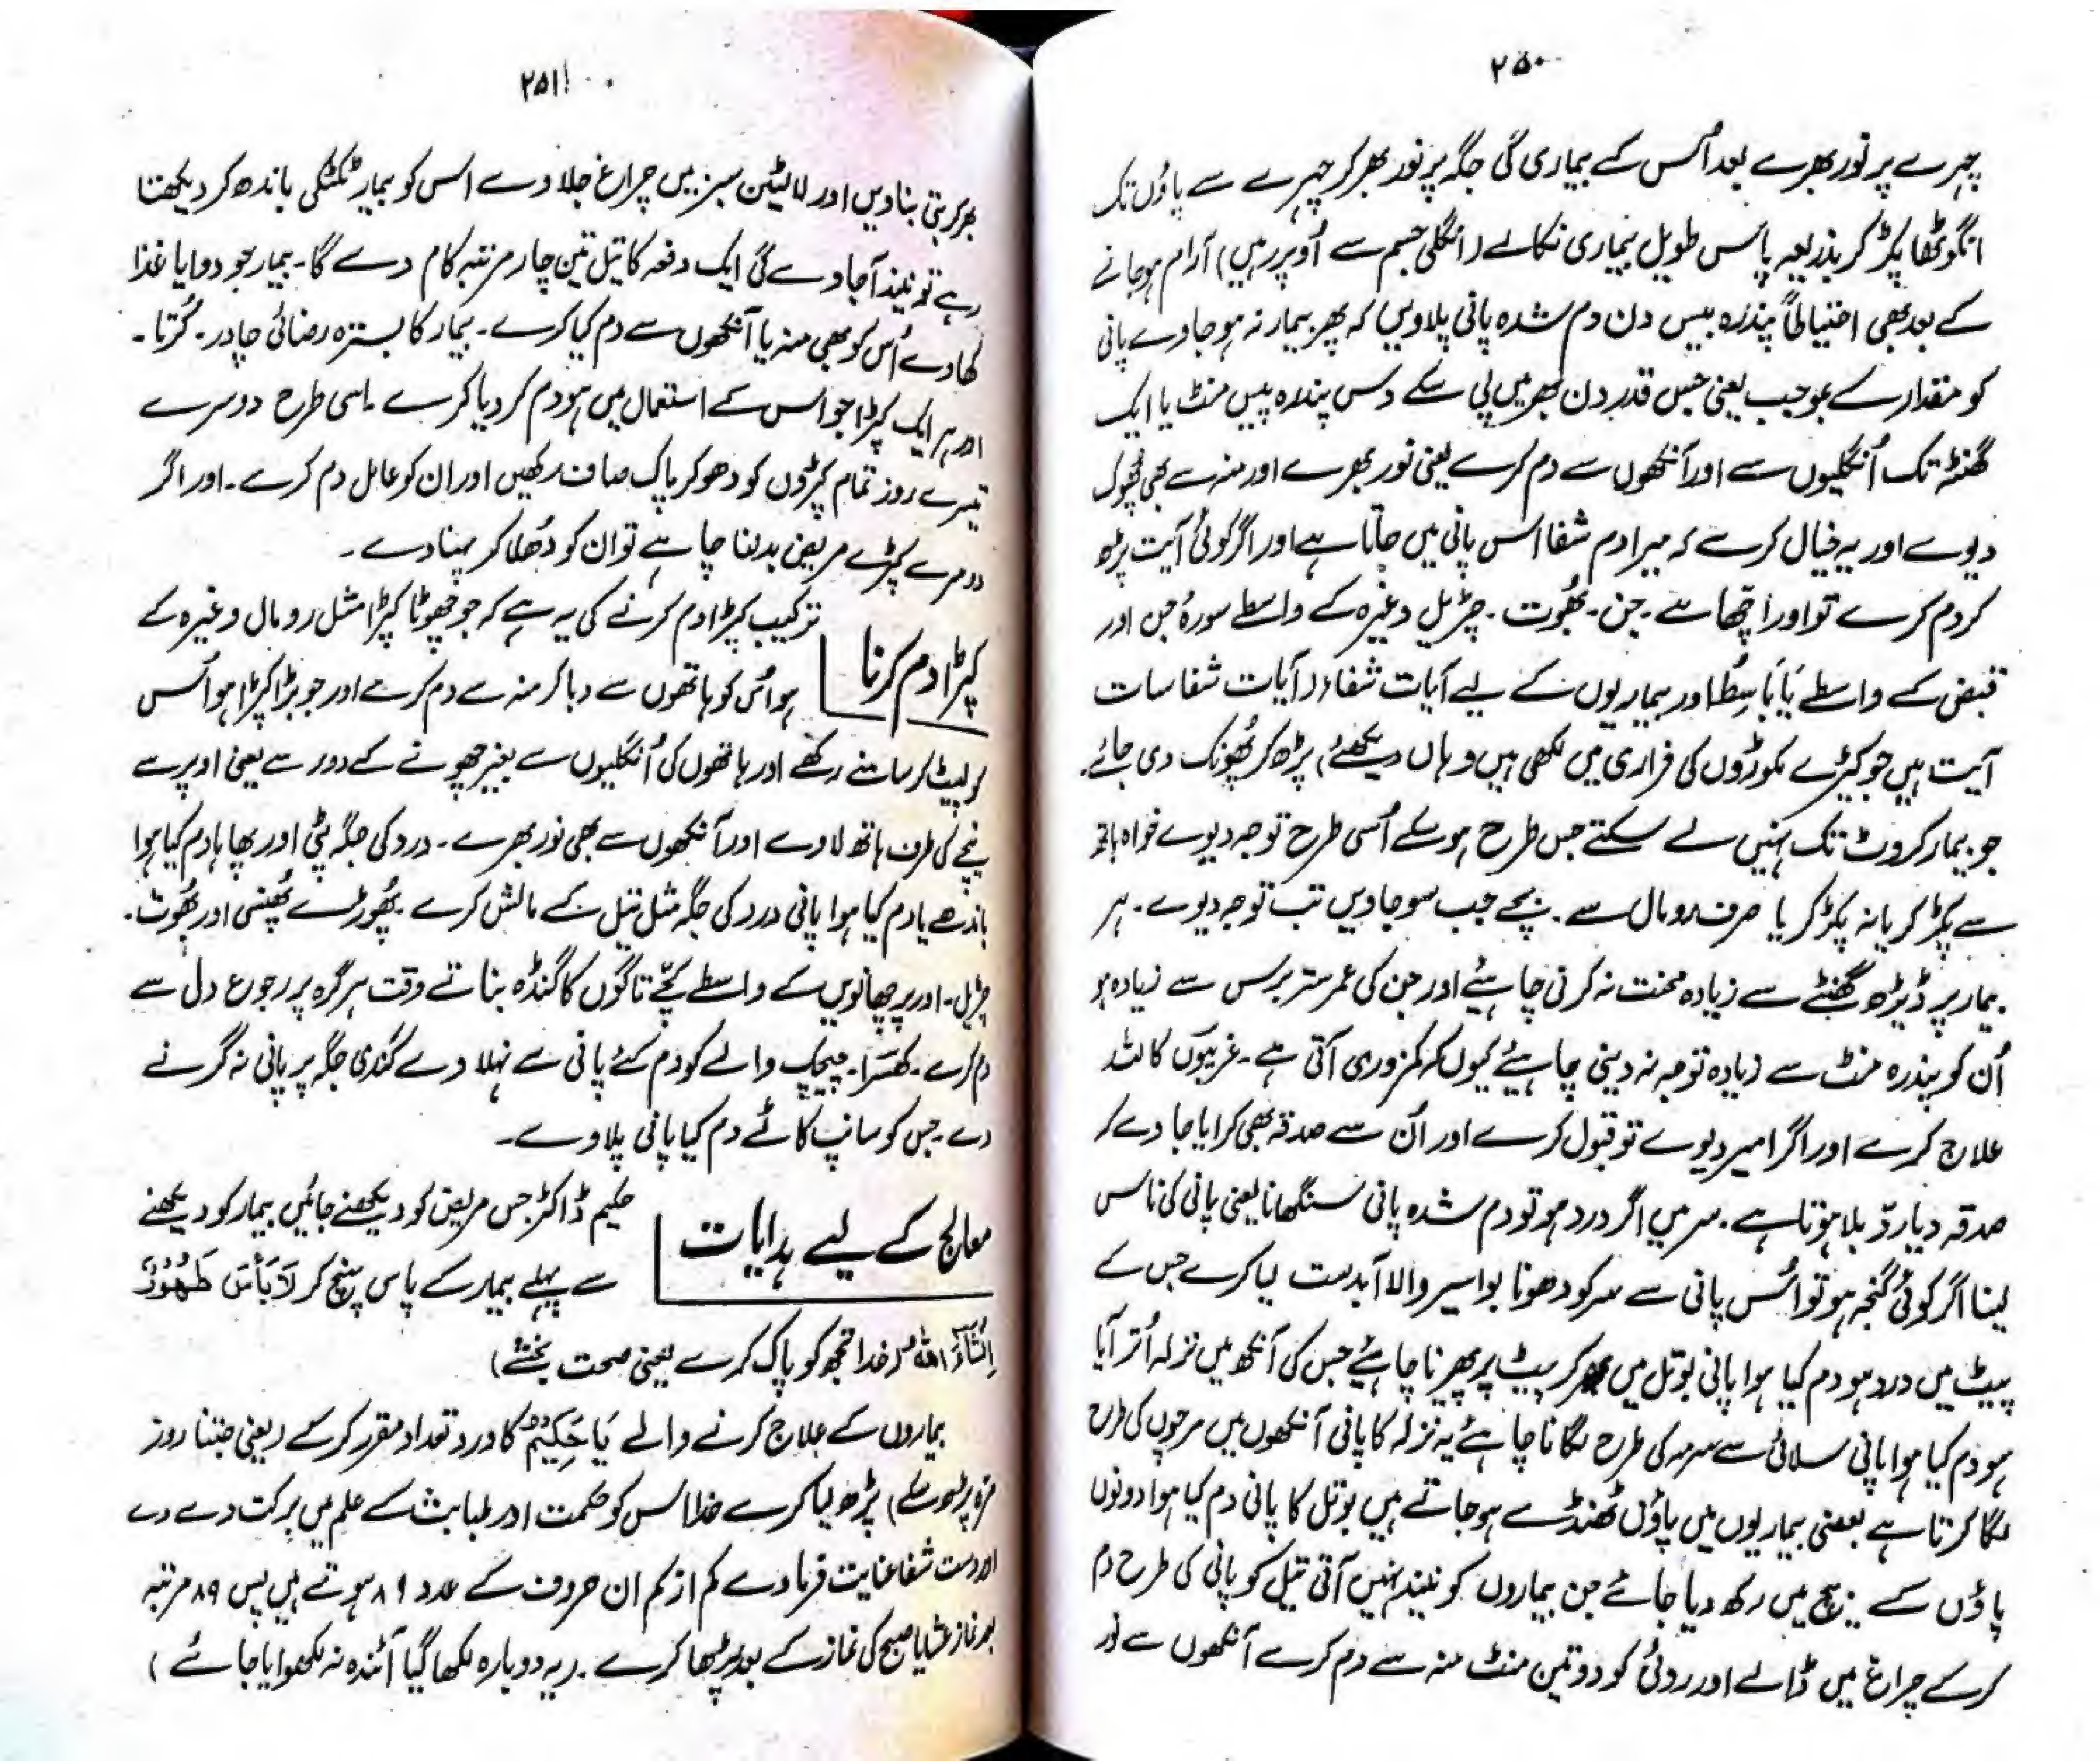 ۲۵۰
چہرے پر نور بھرے بعد اُس کے بیماری کی جگہ پر نور بھر کر چہرے سے پاؤں تک
انگوٹھا پکڑ کر بذریعہ پاس طویل بیماری نکالے (انگلی جسم سے اُوپر رہیں) آرام ہو جانے
کے بعد بھی احتیاطاً پندرہ بیس دن دم شدہ پانی پلاویں کہ پھر بیمار نہ ہو جاوے پانی
کو مقدار کے بموجب یعنی جس قدر دن بھر میں پی سکے دس پندرہ بیس منٹ یا ایک
گھنٹہ تک اُنگلیوں سے اور آنکھوں سے دم کرے یعنی نور بھرے اور منہ سے بھی پھوک
دیوے اور یہ خیال کرے کہ میرا دم شفا اس پانی میں جاتا ہے اور اگر کوئی آیت پڑھ
کر دم کرے تو اور اچھا ہے ۔ جن ۔ بھُوت ۔ چڑیل وغیرہ کے واسطے سورۂ جن اور
قبض کے واسطے یَا بَاسِطُ اور بیماریوں کے لیے آیات شفاء (آیات شفا سات
آیت ہیں جو کیڑے مکوڑوں کی فراری میں لکھی ہیں وہاں دیکھئے) پڑھ کر پھُونک دی جائے۔
جو بیمار کروٹ تک نہیں لے سکتے جس طرح ہو سکے اُسی طرح توجہ دیوے خواہ ہاتھ
سے پکڑ کر یا نہ پکڑ کر یا صرف رومال سے ۔ بچے جب سو جاویں تب توجہ دیوے ۔ ہر
بیمار پر ڈیڑھ گھنٹے سے زیادہ محنت نہ کرنی چاہئے اور جن کی عمر ستر برس سے زیادہ ہو
اُن کو پندرہ منٹ سے زیادہ توجہ نہ دینی چاہیئے کیوں کہ کمزوری آتی ہے ۔ غریبوں کا للہ
علاج کرے اور اگر امیر دیوے تو قبول کرے اور اُن سے صدقہ بھی کرایا جاوے کہ
صدقہ دیا ردّ بلا ہوتا ہے ۔ سر میں اگر درد ہو تو دم شدہ پانی سنگھانا یعنی پانی کی ناس
لینا اگر کوئی گنجہ ہو تو اُس پانی سے سر کو دھونا بواسیر والا آبدست لیا کرے جس کے
پیٹ میں درد ہو دم کیا ہوا پانی بوتل میں بھر کر پیٹ پر پھیرنا چاہیئے جس کی آنکھ میں نزلہ اُتر آیا
ہو دم کیا ہوا پانی سلائی سے سرمہ کی طرح لگانا چاہئے یہ نزلہ کا پانی آنکھوں میں مرچوں کی طرح
لگا کرتا ہے بعضی بیماریوں میں پاؤں ٹھنڈے ہو جاتے ہیں بوتل کا پانی دم کیا ہوا دونوں
پاؤں کے بیچ میں رکھ دیا جائے جن بیماروں کو نیند نہیں آتی تیل کو پانی کی طرح دم
کر کے چراغ میں ڈالے اور روئی کو دو تین منٹ منہ سے دم کرے آنکھوں سے نور
۲۵۱
بھر کر بتی بناویں اور لالٹین سبز میں چراغ جلا دے اس کو بیمار ٹکٹکی باندھ کر دیکھتا
رہے تو نیند آجاوے گی ایک دفعہ کا تیل تین چار مرتبہ کام دے گا ۔ بیمار جو دوا یا غذا
کھاوے اُس کو بھی منہ یا آنکھوں سے دم کیا کرے ۔ بیمار کا بسترہ رضائی چادر ۔ کُرتا ۔
اور ہر ایک کپڑا جو اس کے استعمال میں ہو دم کر دیا کرے ۔ اسی طرح دوسرے
تیسرے روز تمام کپڑوں کو دھو کر پاک صاف رکھیں اور ان کو عامل دم کرے ۔ اور اگر
دوسرے کپڑے مریض بدلنا چاہے تو ان کو دُھلا کر پہنا دے ۔
کپڑا دم کرنا
ترکیب کپڑا دم کرنے کی یہ ہے کہ جو چھوٹا کپڑا مثل رومال وغیرہ کے
ہو اُس کو ہاتھوں سے دبا کر منہ سے دم کرے اور جو بڑا کپڑا ہو اُس
کو لپیٹ کر سامنے رکھے اور ہاتھوں کی اُنگلیوں سے بغیر چھونے کے دور سے یعنی اوپر سے
نیچے کی طرف ہاتھ لاوے اور آنکھوں سے بھی نور بھرے ۔ درد کی جگہ پٹی اور پھاہا دم کیا ہوا
باندھے یا دم کیا ہوا پانی درد کی جگہ مثل تیل کے مالش کرے ۔ پھُوڑے پھُنسی اور بھُوت ۔
چڑیل ۔ اور پرچھانویں کے واسطے کچے تاگوں کا گنڈہ بناتے وقت ہر گرہ پر رجوع دل سے
دم کرے ۔ کھسرا ۔ چیچک والے کو دم کئے پانی سے نہلا دے گندی جگہ پر پانی نہ گرنے
دے ۔ جس کو سانپ کاٹے دم کیا پانی پلاوے ۔
معالج کے لیے ہدایات
حکیم ڈاکٹر جس مریض کو دیکھنے جائیں بیمار کو دیکھنے
سے پہلے بیمار کے پاس پہنچ کر لَا بَأْسَ طَهُوْرٌ
اِنْشَآءَ اللهُ (خدا تجھ کو پاک کرے یعنی صحت بخشے)
بیماروں کے علاج کرنے والے یَا حَکِیْمُ کا ورد تعداد مقرر کر کے (یعنی جتنا روز
مرہ پڑھ سکے) پڑھ لیا کرے خدا اس کو حکمت اور طبابت کے علم میں برکت دے دے
اور دست شفا عنایت فرما دے کم از کم ان حروف کے عدد ۸۹ ہوتے ہیں پس ۸۹ مرتبہ
بعد نماز عشا یا صبح کی نماز کے بعد پڑھا کرے ۔ (یہ دوبارہ لکھا گیا آئندہ نہ لکھوایا جائے)